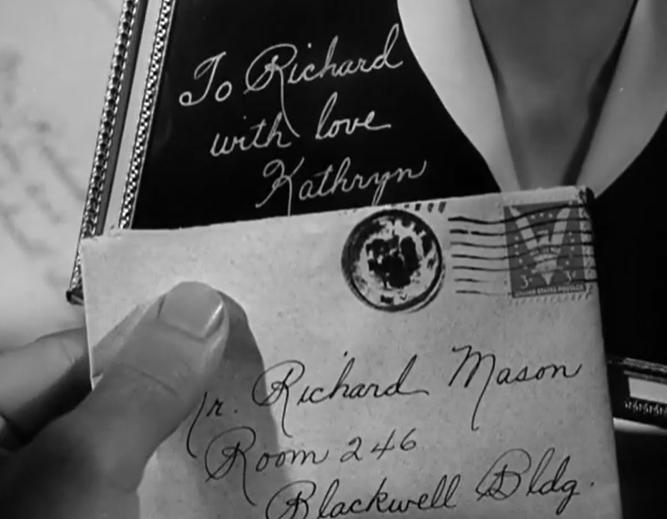 To Richard
with love
Kathryn
3¢ 3¢
UNITED STATES POSTAGE
Mr. Richard Mason
Room 246
Blackwell Bldg.